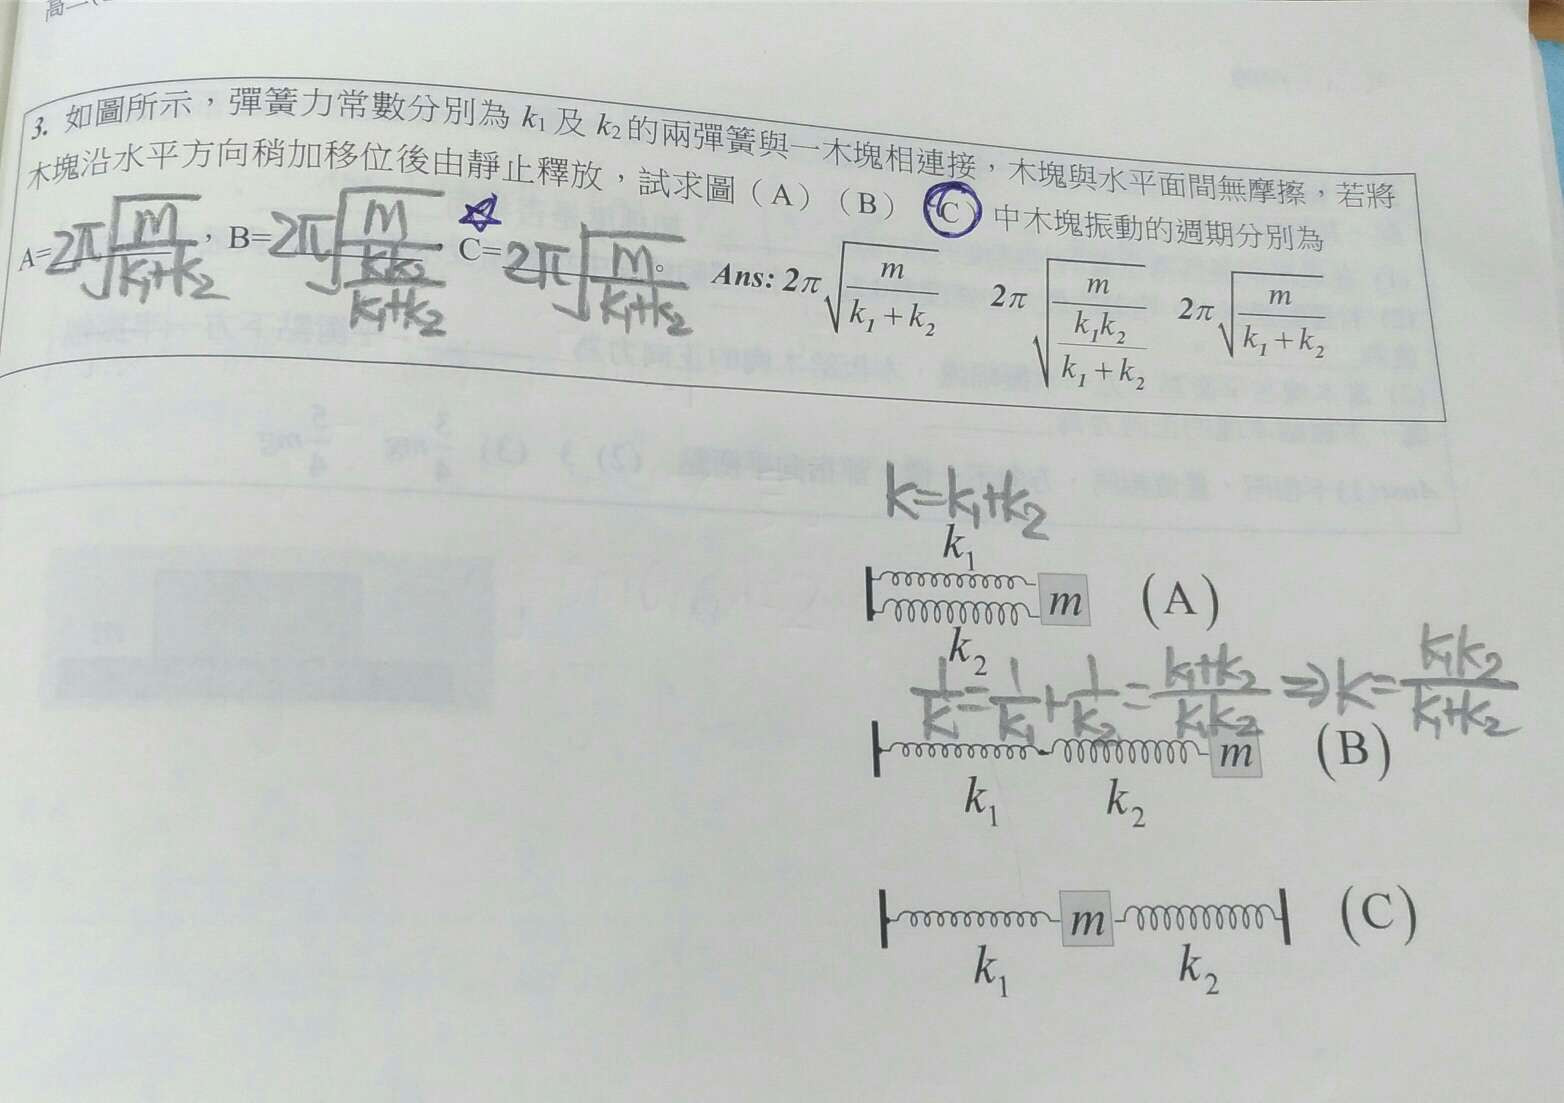 高二(
3. 如圖所示，彈簧力常數分別為 k₁ 及 k₂ 的兩彈簧與一木塊相連接，木塊與水平面間無摩擦，若將
木塊沿水平方向稍加移位後由靜止釋放，試求圖（A）（B）（C）中木塊振動的週期分別為
A=2π√(m/(k₁+k₂))，B=2π√(m/(k₁k₂/(k₁+k₂))) ☆ C=2π√(m/(k₁+k₂))。 Ans: 2π√(m/(k₁+k₂)) 2π√(m/(k₁k₂/(k₁+k₂))) 2π√(m/(k₁+k₂))
k=k₁+k₂
k₁
m (A)
k₂
1/k=1/k₁+1/k₂=(k₁+k₂)/(k₁k₂)⇒k=k₁k₂/(k₁+k₂)
m (B)
k₁ k₂
m (C)
k₁ k₂